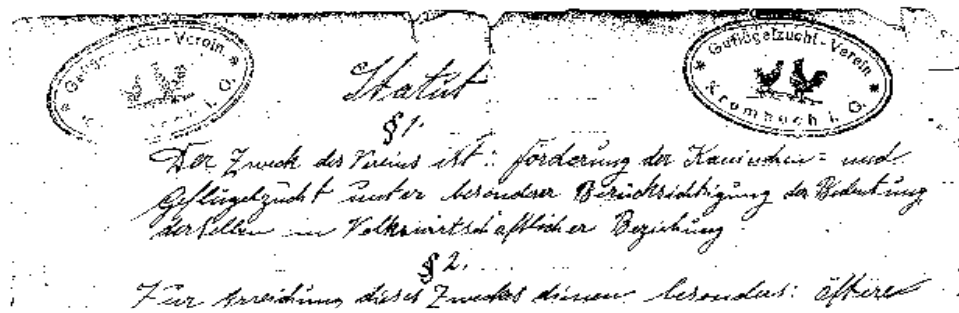 Geflügelzucht-Verein
Krombach i. O.
Statut
§ 1.
Der Zweck des Vereins ist: Förderung der Kaninchen= und
Geflügelzucht unter besonderer Berücksichtigung der Bedeutung
derselben in Volkswirtschaftlicher Beziehung.
§ 2.
Zur Erreichung dieses Zweckes dienen besonders: öftere